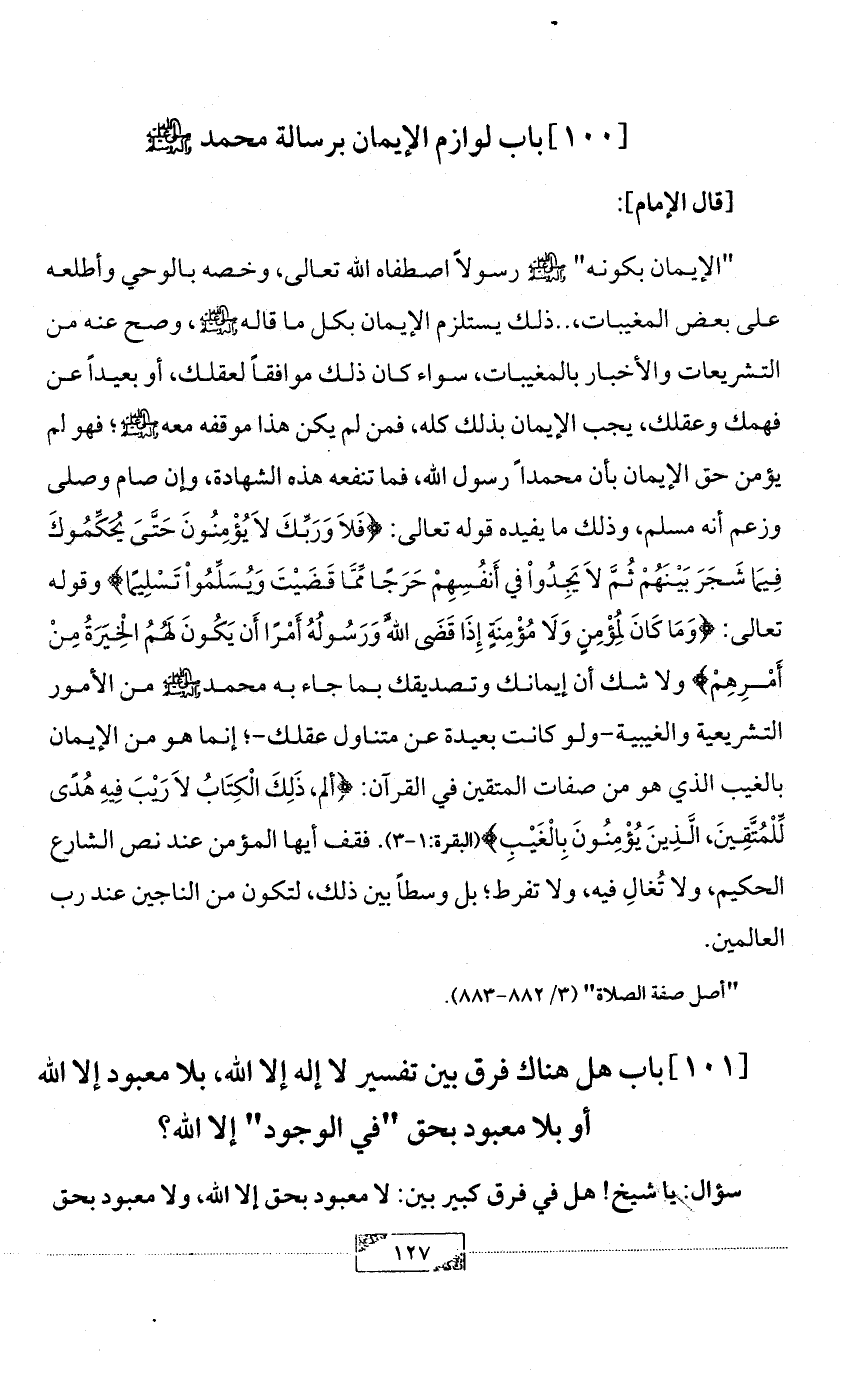 [١٠٠] باب لوازم الإيمان برسالة محمد ﷺ
[قال الإمام]:
"الإيمان بكونه" ﷺ رسولاً اصطفاه الله تعالى، وخصه بالوحي وأطلعه
على بعض المغيبات،..ذلك يستلزم الإيمان بكل ما قاله ﷺ، وصح عنه من
التشريعات والأخبار بالمغيبات، سواء كان ذلك موافقاً لعقلك، أو بعيداً عن
فهمك وعقلك، يجب الإيمان بذلك كله، فمن لم يكن هذا موقفه معه ﷺ؛ فهو لم
يؤمن حق الإيمان بأن محمداً رسول الله، فما تنفعه هذه الشهادة، وإن صام وصلى
وزعم أنه مسلم، وذلك ما يفيده قوله تعالى: ﴿فَلاَ وَرَبِّكَ لاَ يُؤْمِنُونَ حَتَّىَ يُحَكِّمُوكَ
فِيمَا شَجَرَ بَيْنَهُمْ ثُمَّ لاَ يَجِدُواْ فِي أَنفُسِهِمْ حَرَجًا مِّمَّا قَضَيْتَ وَيُسَلِّمُواْ تَسْلِيمًا﴾ وقوله
تعالى: ﴿وَمَا كَانَ لِمُؤْمِنٍ وَلَا مُؤْمِنَةٍ إِذَا قَضَى اللهُ وَرَسُولُهُ أَمْرًا أَن يَكُونَ لَهُمُ الْخِيَرَةُ مِنْ
أَمْرِهِمْ﴾ ولا شك أن إيمانك وتصديقك بما جاء به محمد ﷺ من الأمور
التشريعية والغيبية -ولو كانت بعيدة عن متناول عقلك-؛ إنما هو من الإيمان
بالغيب الذي هو من صفات المتقين في القرآن: ﴿ألم، ذَلِكَ الْكِتَابُ لاَ رَيْبَ فِيهِ هُدًى
لِّلْمُتَّقِينَ، الَّذِينَ يُؤْمِنُونَ بِالْغَيْبِ﴾ (البقرة:١-٣). فقف أيها المؤمن عند نص الشارع
الحكيم، ولا تُغالِ فيه، ولا تفرط؛ بل وسطاً بين ذلك، لتكون من الناجين عند رب
العالمين.
"أصل صفة الصلاة" (٣/ ٨٨٢-٨٨٣).
[١٠١] باب هل هناك فرق بين تفسير لا إله إلا الله، بلا معبود إلا الله
أو بلا معبود بحق "في الوجود" إلا الله؟
سؤال: يا شيخ! هل في فرق كبير بين: لا معبود بحق إلا الله، ولا معبود بحق
١٢٧